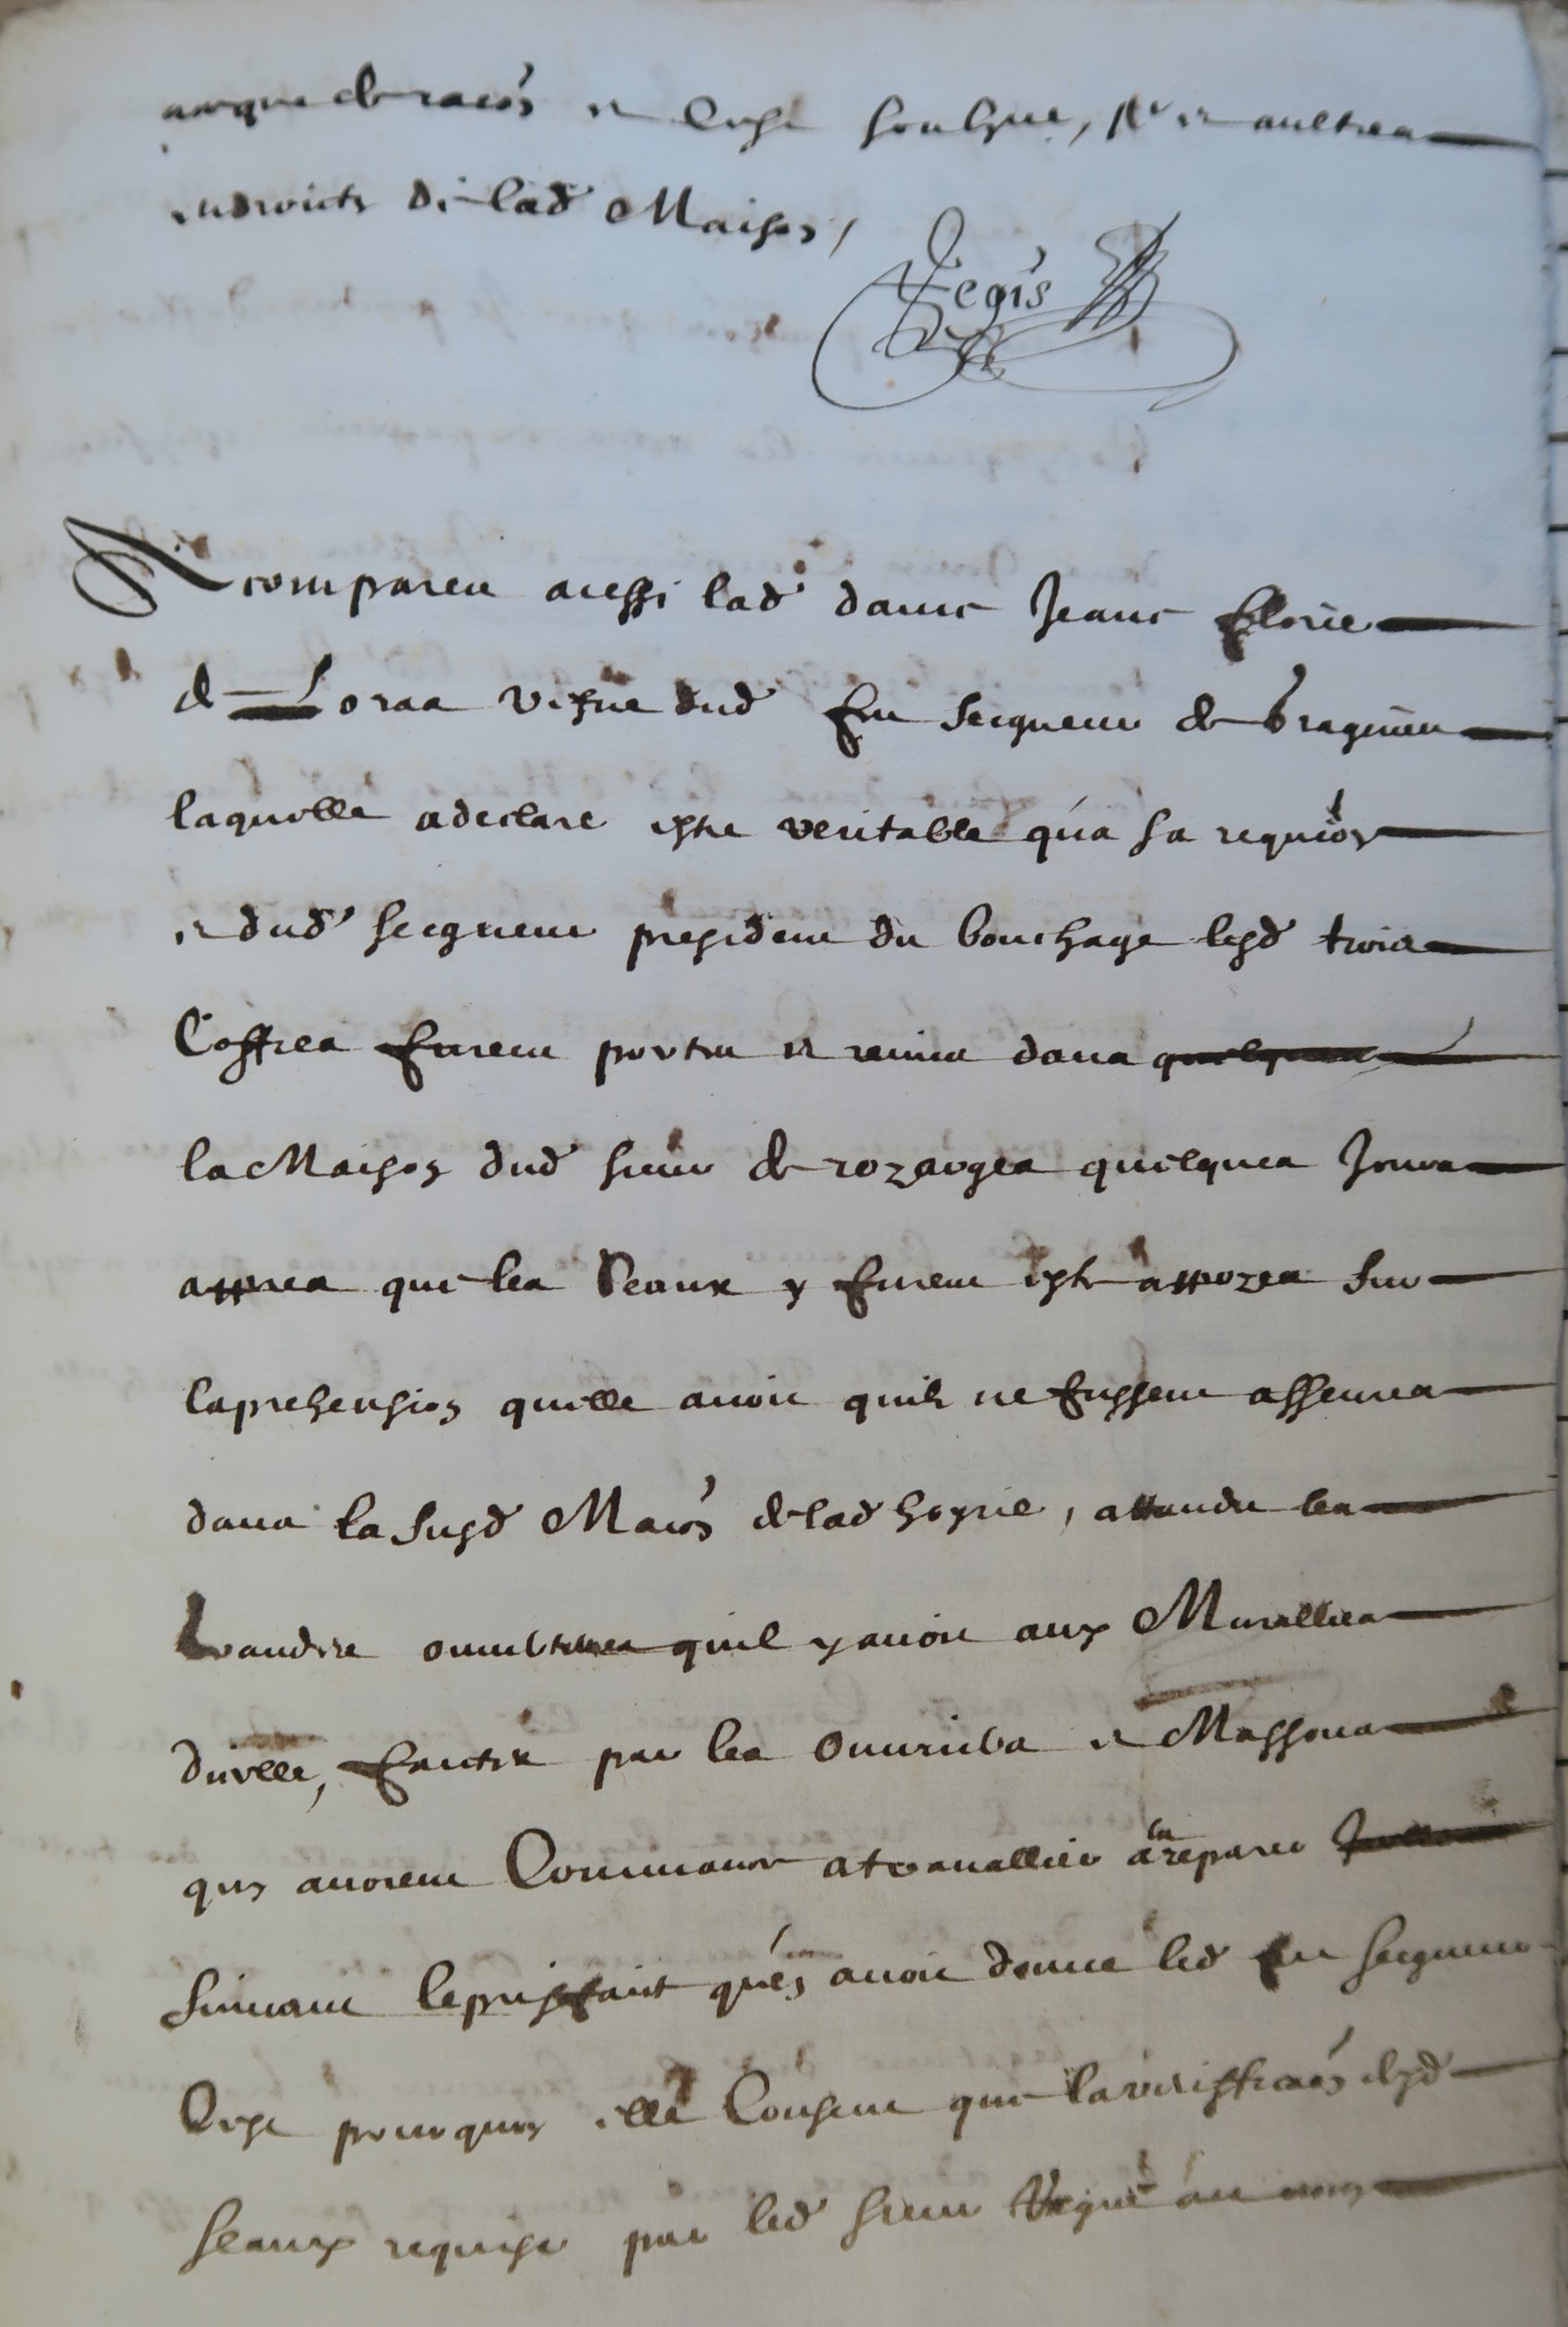 et aultres
endroictz de lad Maison /
Regis
A compareu aussi lad dame Jeane Florie
de Loras vefve dud feu seigneur de
laquelle a declaré estre veritable qu'a sa requiõn
et dud' seigneur president du bouchage lesd trois
Coffres furent portes et remis dans quelques
la Maison dud sieur de rozanges quelques Jours
appres que les Seaux y furent esté appozes sur
laprehension quelle avoit quils ne fussent asseures
dans la susd Maiõn de lad hoyrie, attandu les
grandes ouvertures quil y avoit aux Muralhes
dicelle, faictes par les ouvriers et Massons
quy avoient Commancé a travallier a la reparer
suivant le prisfaict qu'en avoit donné led feu seigneur
pourquoy elle Consent que la veriffication desd
seaux requise par led sieur Regis au nom